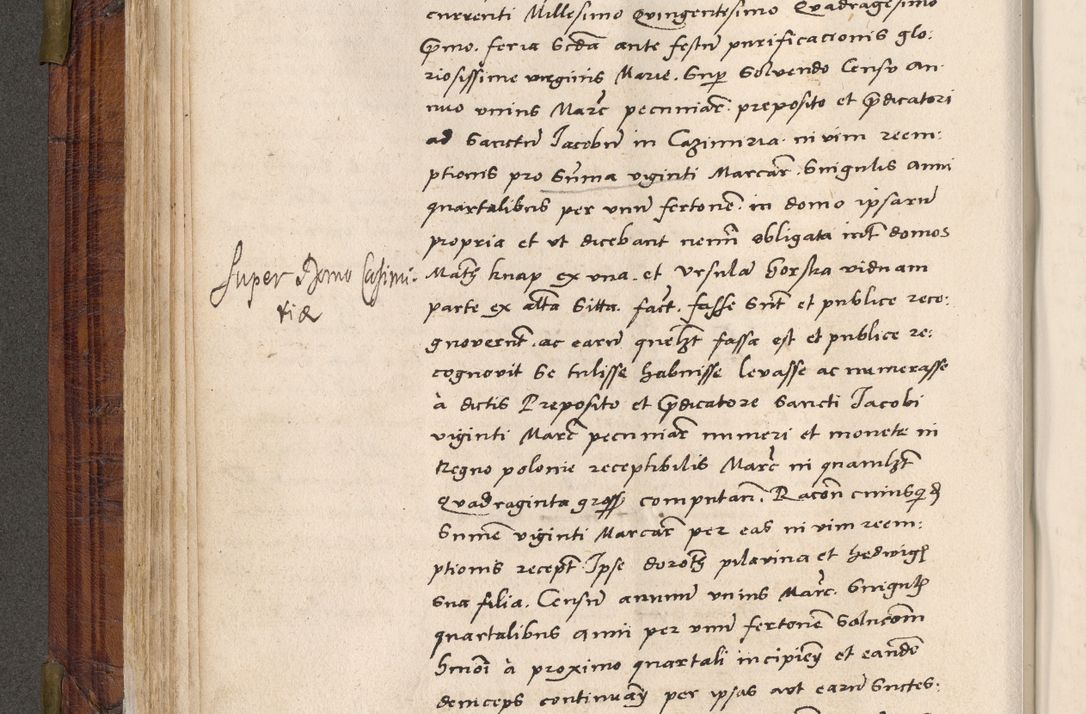 currenti Millesimo Quingentesimo Quadragesimo
p̃mo. feria Scďa ante festũ purificationis glo:
riosissime virginis Marie. Sup̱ Solvendo Censu An
nuo unius Marc̃ pecuniar̃. preposito et p̃dicatori
ad Sanctũ Iacobũ in Cazimiria. in vim reem:
ptionis pro Sum̃a viginti Marcar̃. Singulis anni
quartalibus per unũ fertonẽ. in domo ipsarũ
propria et ut dicebant nemĩ obligata int̃ domos
Math̃ knap ex una. et Ursula Gorska viduam
parte ex alťa Sitta. fact̃. fasse Sũt et publice reco:
gnoverũt. ac earũ quelƷt fassa est et publice re:
cognovit Se tulisse habuisse levasse ac numerasse
à dictis Preposito et p̃dicatore Sancti Iacobi
viginti Marc̃ pecuniar̃ numeri et monete in
Regno polonie receptibilis Marc̃ in quamlƷt
Quadraginta gross̃ computan̄. Racoñ cuiusquid̃
Sum̃e viginti Marcar̃ per eas in vim reem:
ptionis recept̃. Ipse doroth̃ pilarina et hedwigis̃
Sua filia. Censũ annuũ unius Marc̃. Singulis̃
quartalibus anni per unũ fertonẽ Solucoñm
hmõi à proximo quartali incipien̄ et eandẽ
deinceps continuan̄ per ipsas aut earũ Succes:
Super Domo Casimi-
riæ